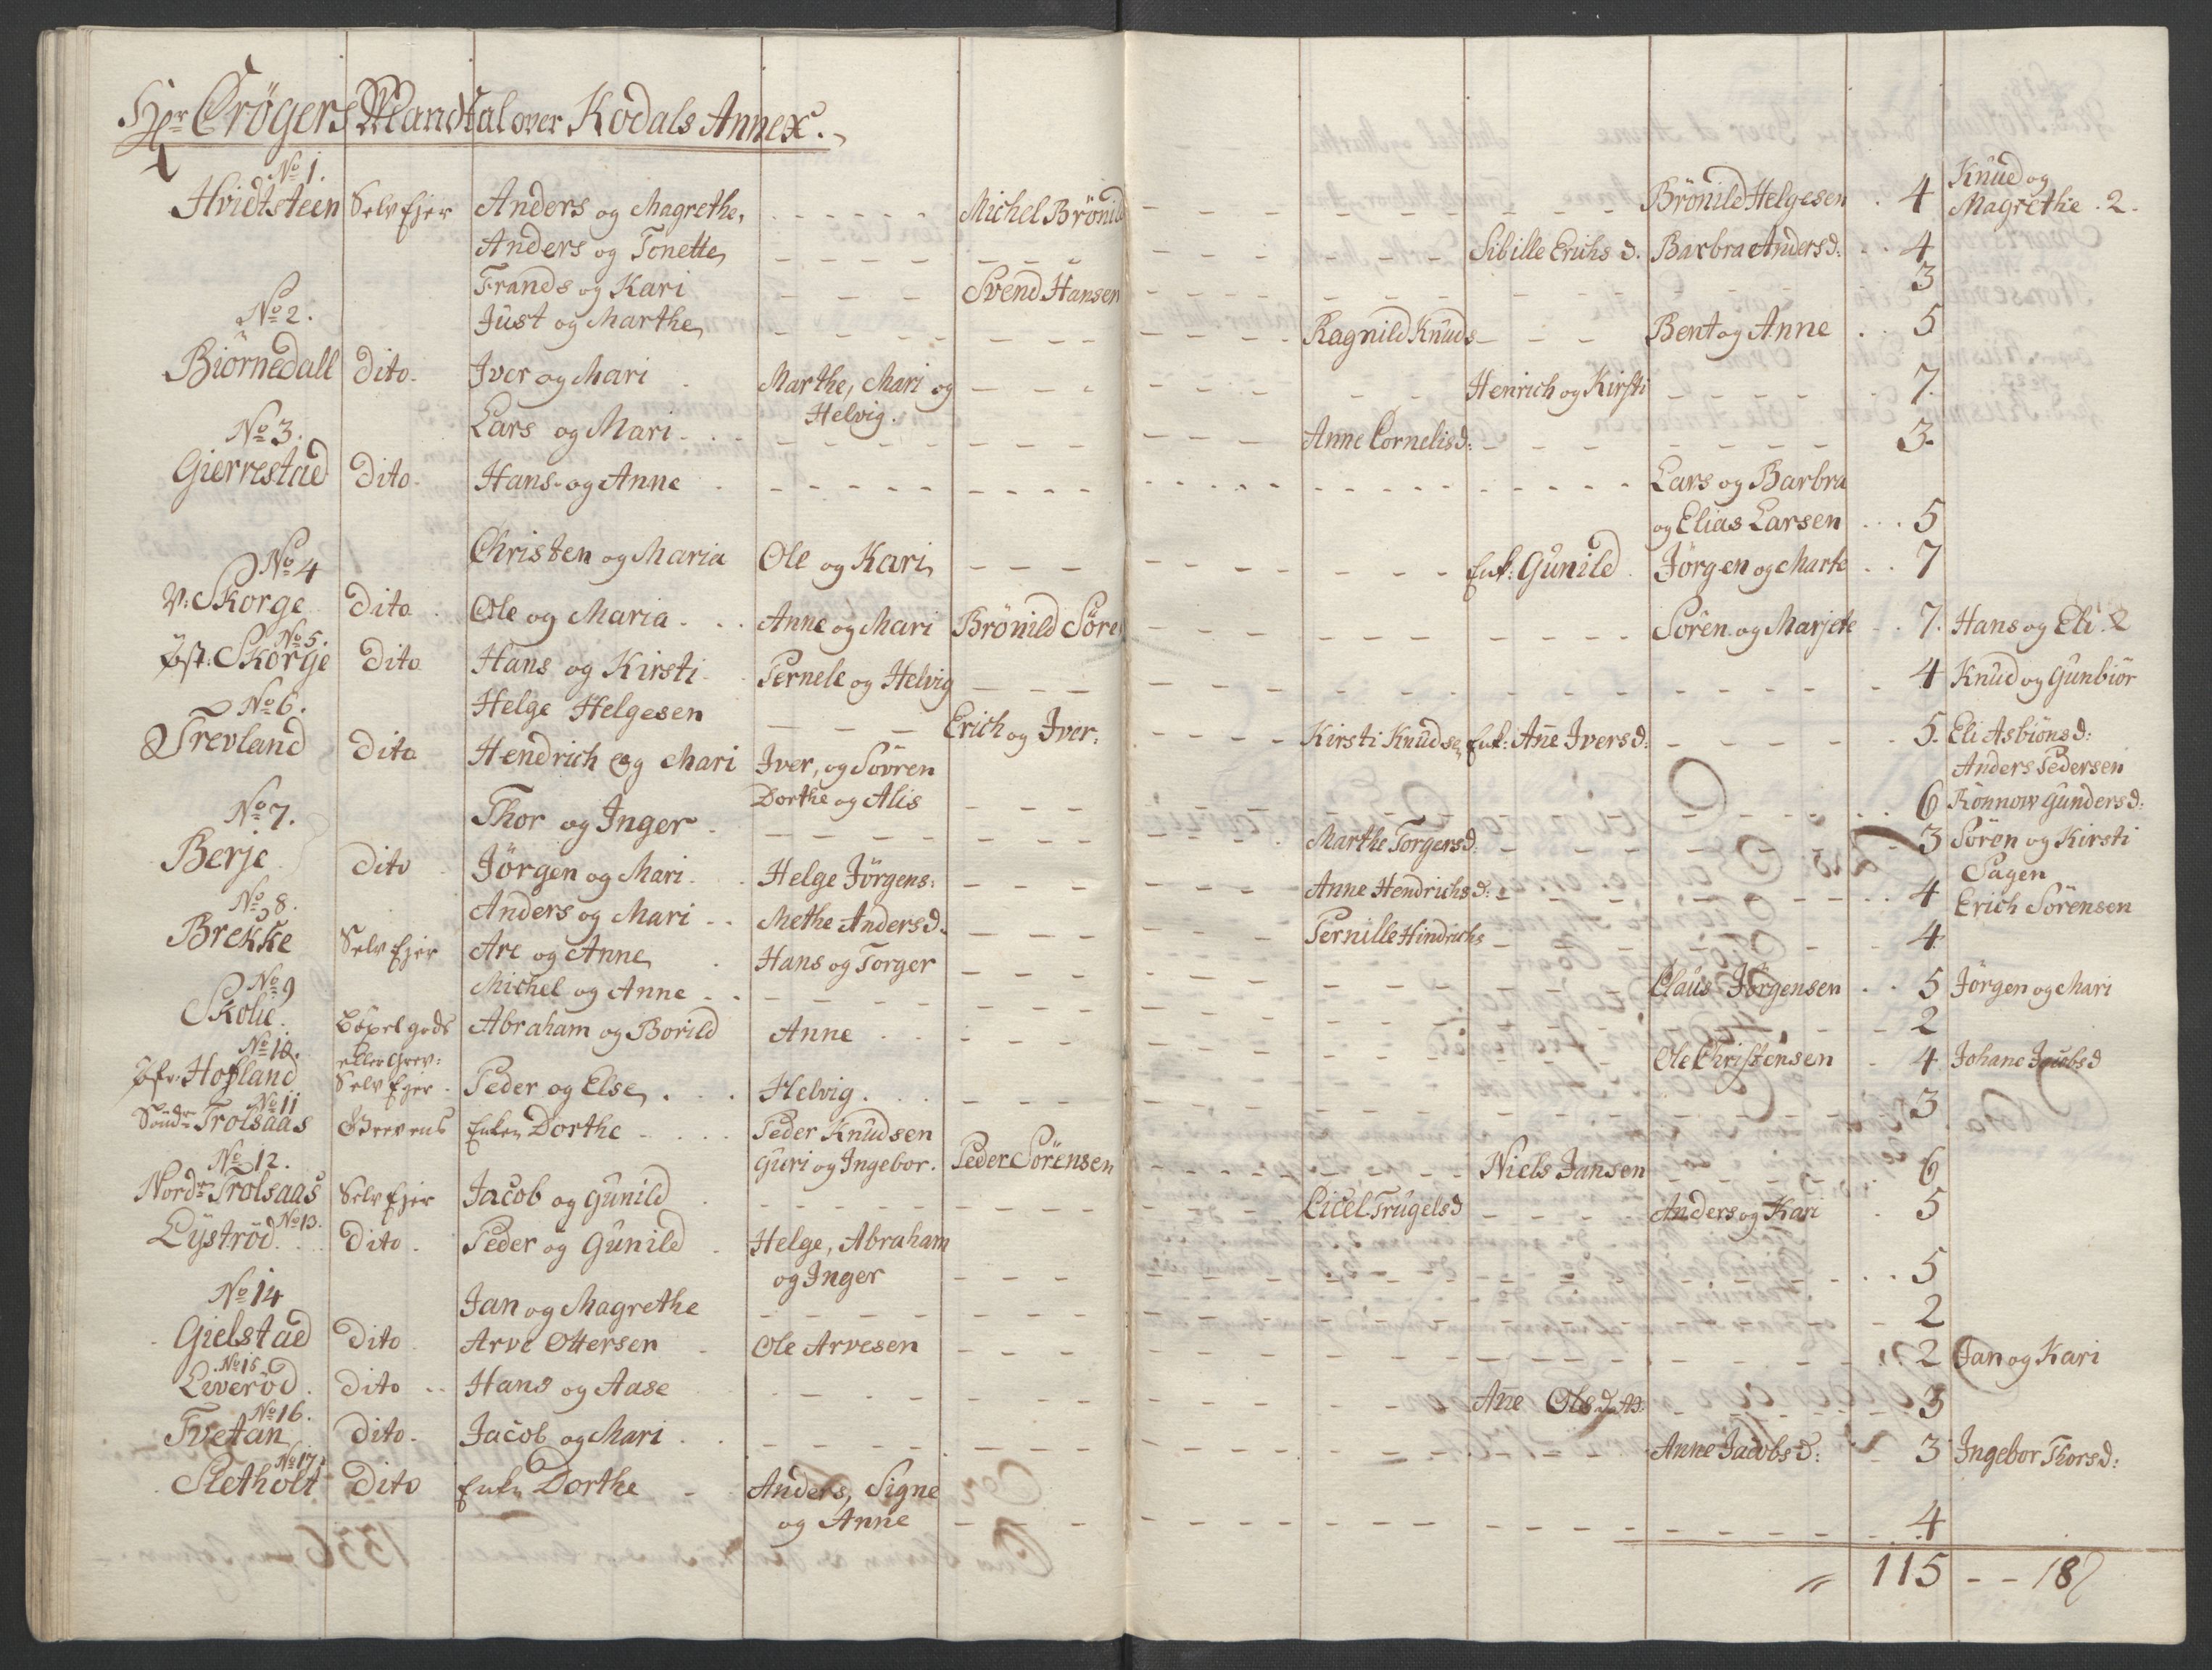 Hr Crögers Mandtal over Kodals Annex.
No 1.
Hvidtsteen Selv Ejer Anders og Magrethe, Michel Brönild Brönild Helgesen 4 Knud og Magrethe . 2.
Anders og Tonette Sibille Erichs d. Barbra Andersd: 4
Frands og Kari Svend Hansen 3
No 2. Just og Marthe Ragnild Knuds Bent og Anne 5
Biörnedall Dito Iver og Mari Marthe, Mari og Helvig. Henrich og Kirsti 7.
No 3. Lars og Mari Anne Cornelisd: 3.
Gierrestad Dito Hans og Anne Lars og Barbra
og Elias Larsen 5
No 4 Christen og Maria Ole og Kari Enk: Gunild Jörgen og Marte 7
V: Skorge Dito Ole og Maria Anne og Mari Brönild Söre Sören og Marjete 7. Hans og Eli . 2
No 5.
Øst: Skorge Dito Hans og Kirsti Pernele og Helvig 4 Knud og Gunbiör
No 6. Helge Helgesen Erich og Iver: Kirsti Knudsen Enk: Añe Iversd: 5. Eli Asbiönsd:
Trevland Dito Hendrich og Mari Iver, og Sövren Anders Pedersen
Dorthe og Alis 6 Rönnow Gundersd:
No 7. Thor og Inger Marthe Torgersd: 3 Sören og Kirsti
Berje Dito Jörgen og Mari Helge Jörgens: Anne Hendrichsd: 4 Sagen
Erich Sörensen
No 8. Anders og Mari Methe Andersd. Pernille Hindrichs 4
Brekke Selv Ejer Are og Anne Hans og Torger Claus Jörgensen 5 Jörgen og Mari
No 9 Michel og Anne 2
Skolie Abraham og Borild Anne Ole Christensen 4 Johane Jacobsd
No 10. eller Grev:
Øfv: Hofland Selv Ejer Peder og Else Helvig 3
No 11
Sönd: Trolsaas Grevens Enken Dorthe Peder Knudsen
No 12. Guri og Ingebor. Peder Sörensen Niels Jansen 6
Nordr Trolsaas Selv Ejer Jacob og Gunild Licel Trugelsd Anders og Kari 5
No 13.
Lyströd Dito Peder og Gunild Helge, Abraham
og Inger 5
No 14 Jan og Magrethe 2
Gielstad Dito Arve Ottersen Ole Arvesen 2 Jan og Kari
No 15
Liveröd Dito Hans og Aase Añe Olsd 3
No 16.
Tvetan Dito Jacob og Mari Anne Jacobsd: 3 Ingebor Thorsd:
No 17
Sletholt Dito Enken Dorthe Anders, Signe
og Anne 4
115 - - 18